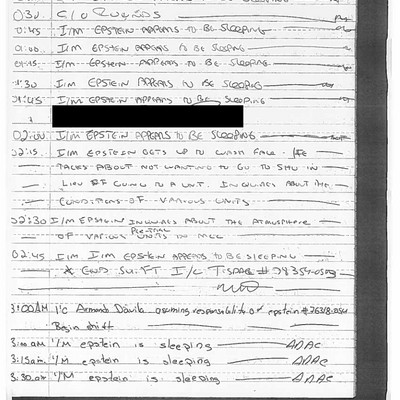 I/M EPSTEIN APPEARS TO BE SLEEPING
C/O
I/M EPSTEIN APPEARS TO BE SLEEPING
01:00 I/M EPSTEIN APPEARS TO BE SLEEPING
01:15 I/M EPSTEIN APPEARS TO BE SLEEPING
1:30 I/M EPSTEIN APPEARS TO BE SLEEPING
01:45 I/M EPSTEIN APPEARS TO BE SLEEPING
02:00 I/M EPSTEIN APPEARS TO BE SLEEPING
02:15 I/M EPSTEIN GETS UP TO WASH FACE. HE
TALKS ABOUT NOT WANTING TO GO TO SHU IN
LIEU OF GOING TO A UNIT. INQUIRES ABOUT THE
CONDITIONS OF VARIOUS UNITS
02:30 I/M EPSTEIN INQUIRES ABOUT THE ATMOSPHERE
OF VARIOUS PRE-TRIAL UNITS IN MCC
02:45 I/M EPSTEIN APPEARS TO BE SLEEPING
* END SHIFT I/C
3:00AM I/C Armando Davila assuming responsibility of epstein #76318-054
Begin shift
3:00 AM I/M epstein is sleeping ADAC
3:15am I/M epstein is sleeping ADAC
3:30 am I/M epstein is sleeping ADAC